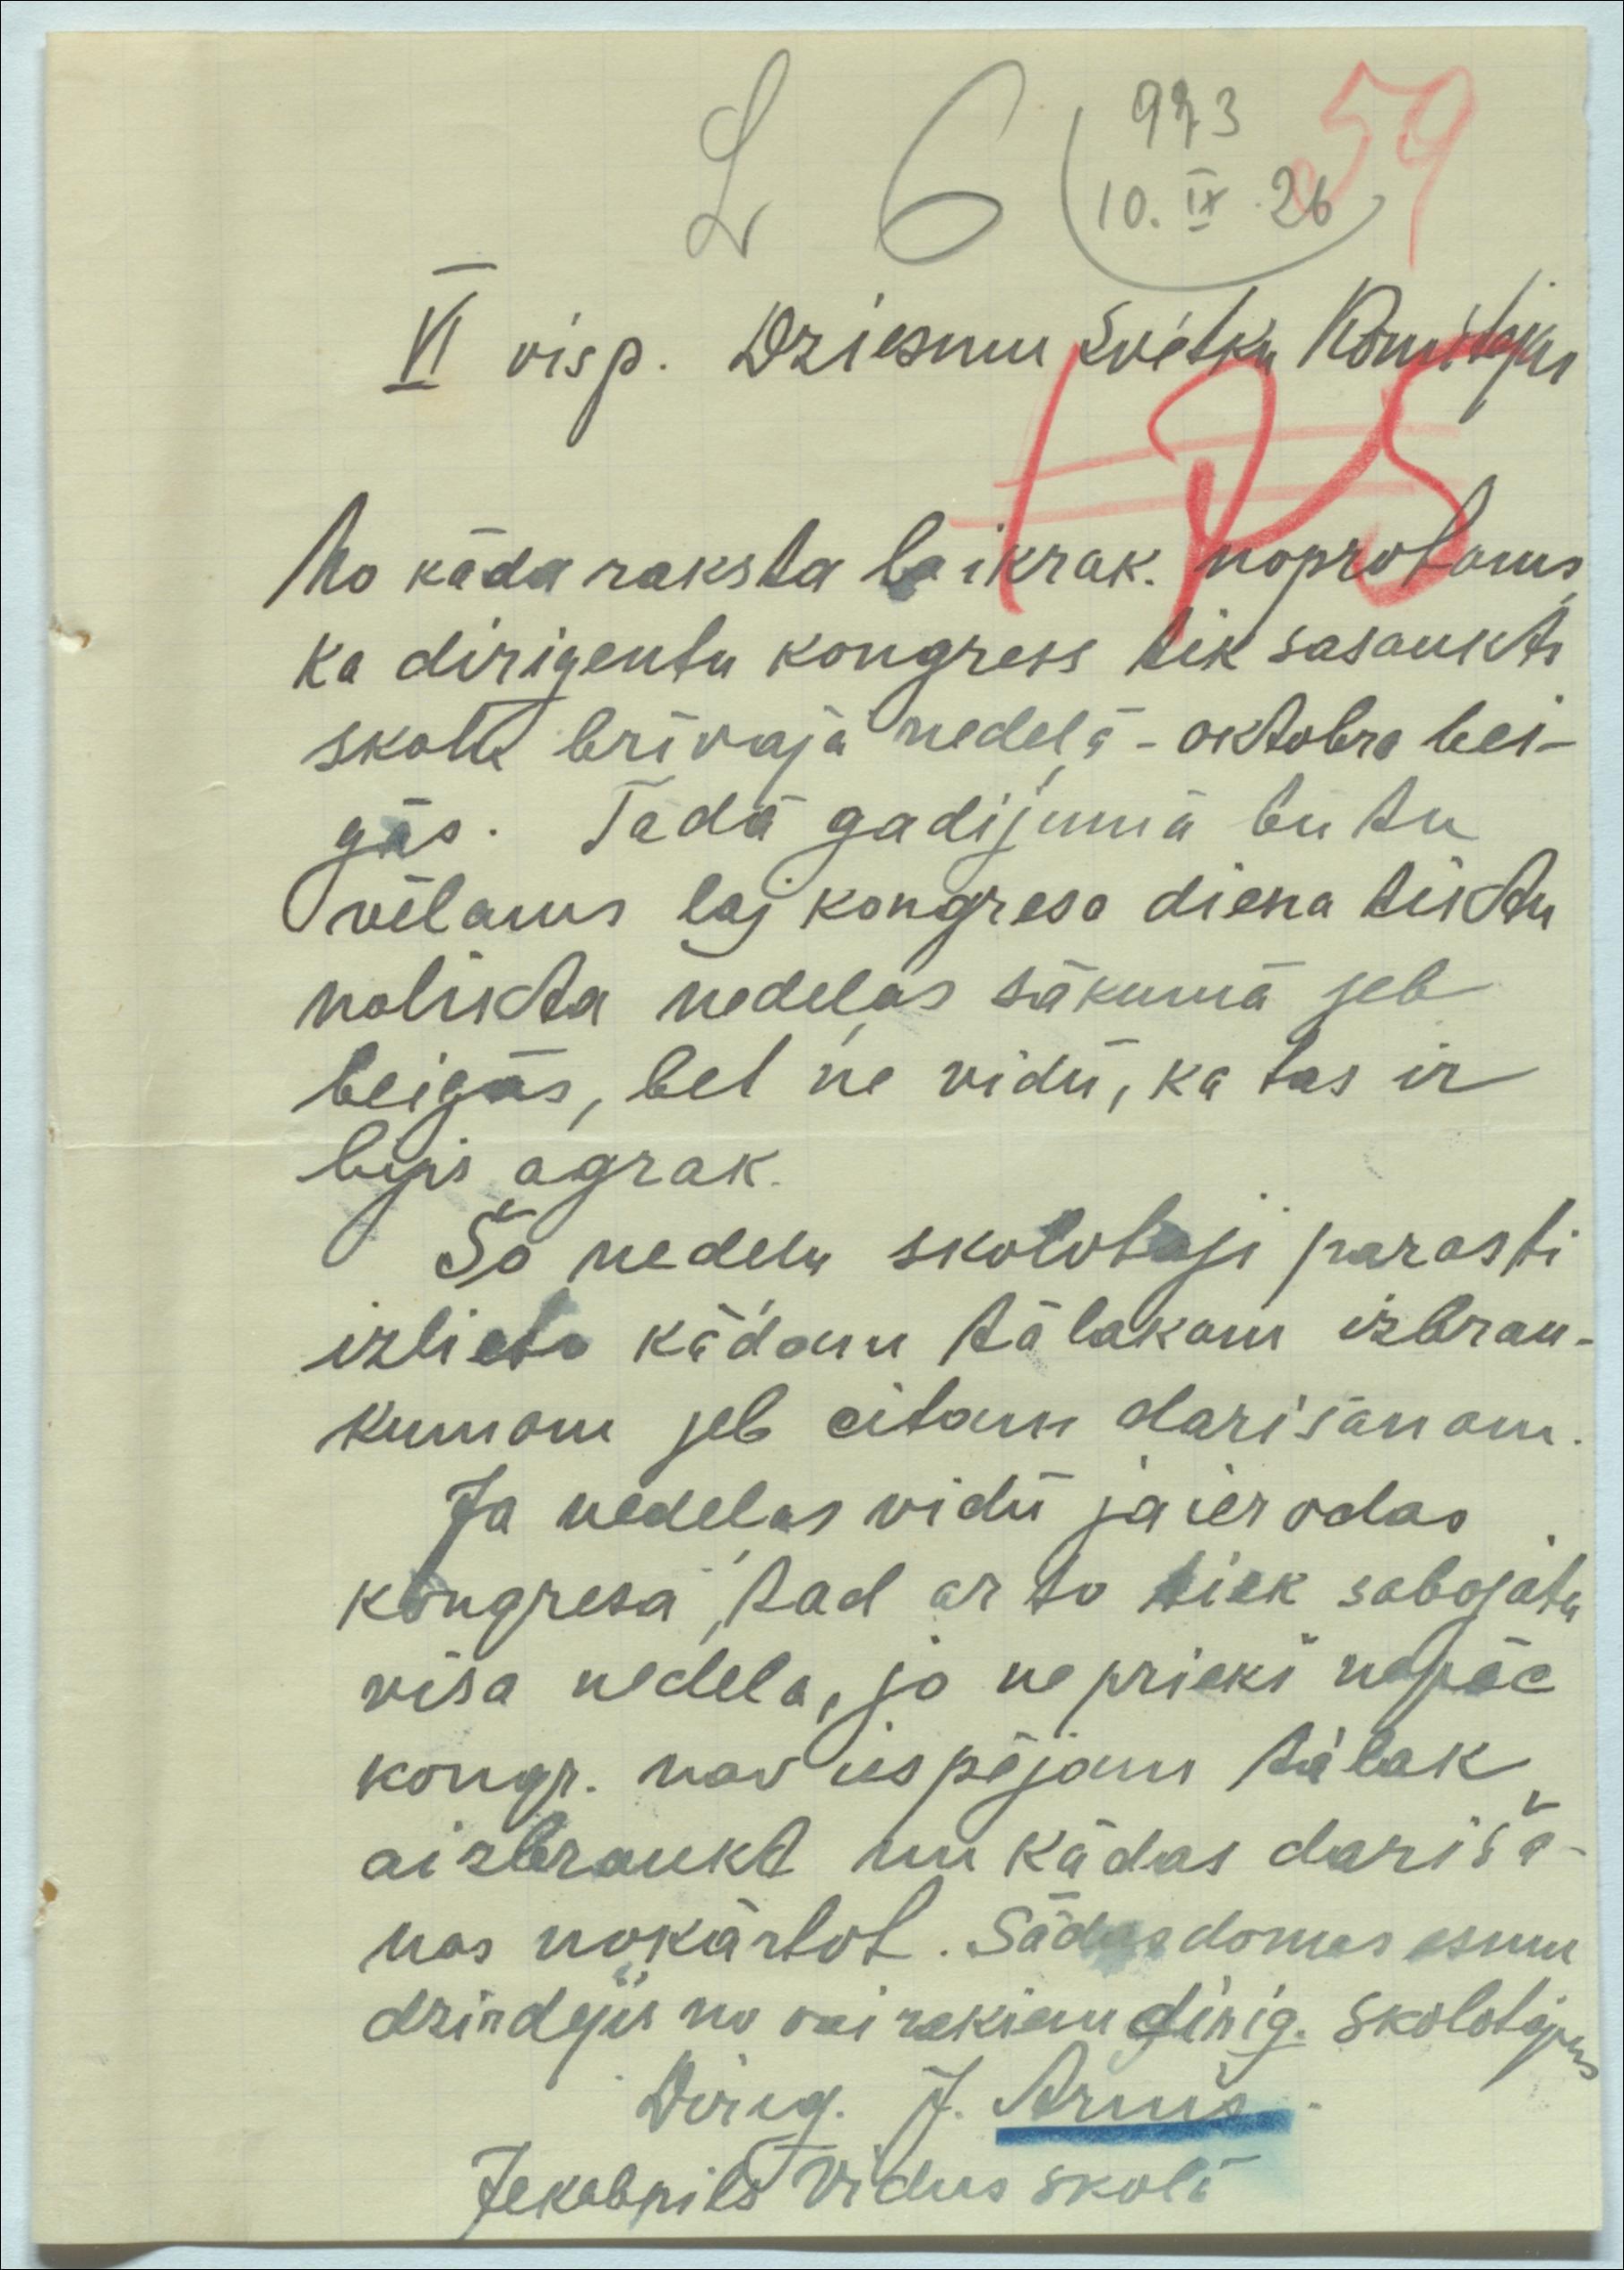 L 6 973 59
10. IX 26
VI visp. Dziesmu Svētku Komitejai
No kāda raksta laikrak. noprotams,
ka dirigentu kongress tik sasaukts
skolu brīvajā nedeļā - oktobra bei-
gās. Tādā gadijumā būtu
vēlams laj kongresa diena tiktu
nolikta nedeļas sākumā jeb
beigās, bet ne vidū, ka tas ir
bijis agrak.
Šo nedeļu skolotaji parasti
izlieto kādam tālakam izbrau-
kumam jeb citam darišanam.
Ja nedeļas vidū jaierodas
kongresā, tad ar to tiek sabojāta
visa nedeļa, jo ne priekš ne pēc
kongr. nav iespējam tālak
aizbraukt un kādas dariša-
nas nokārtot. Šādas domas esmu
dzirdejis no vairakiem dirig. skolotājiem
Dirig. J. Armis.
Jekabpils Vidus skolā